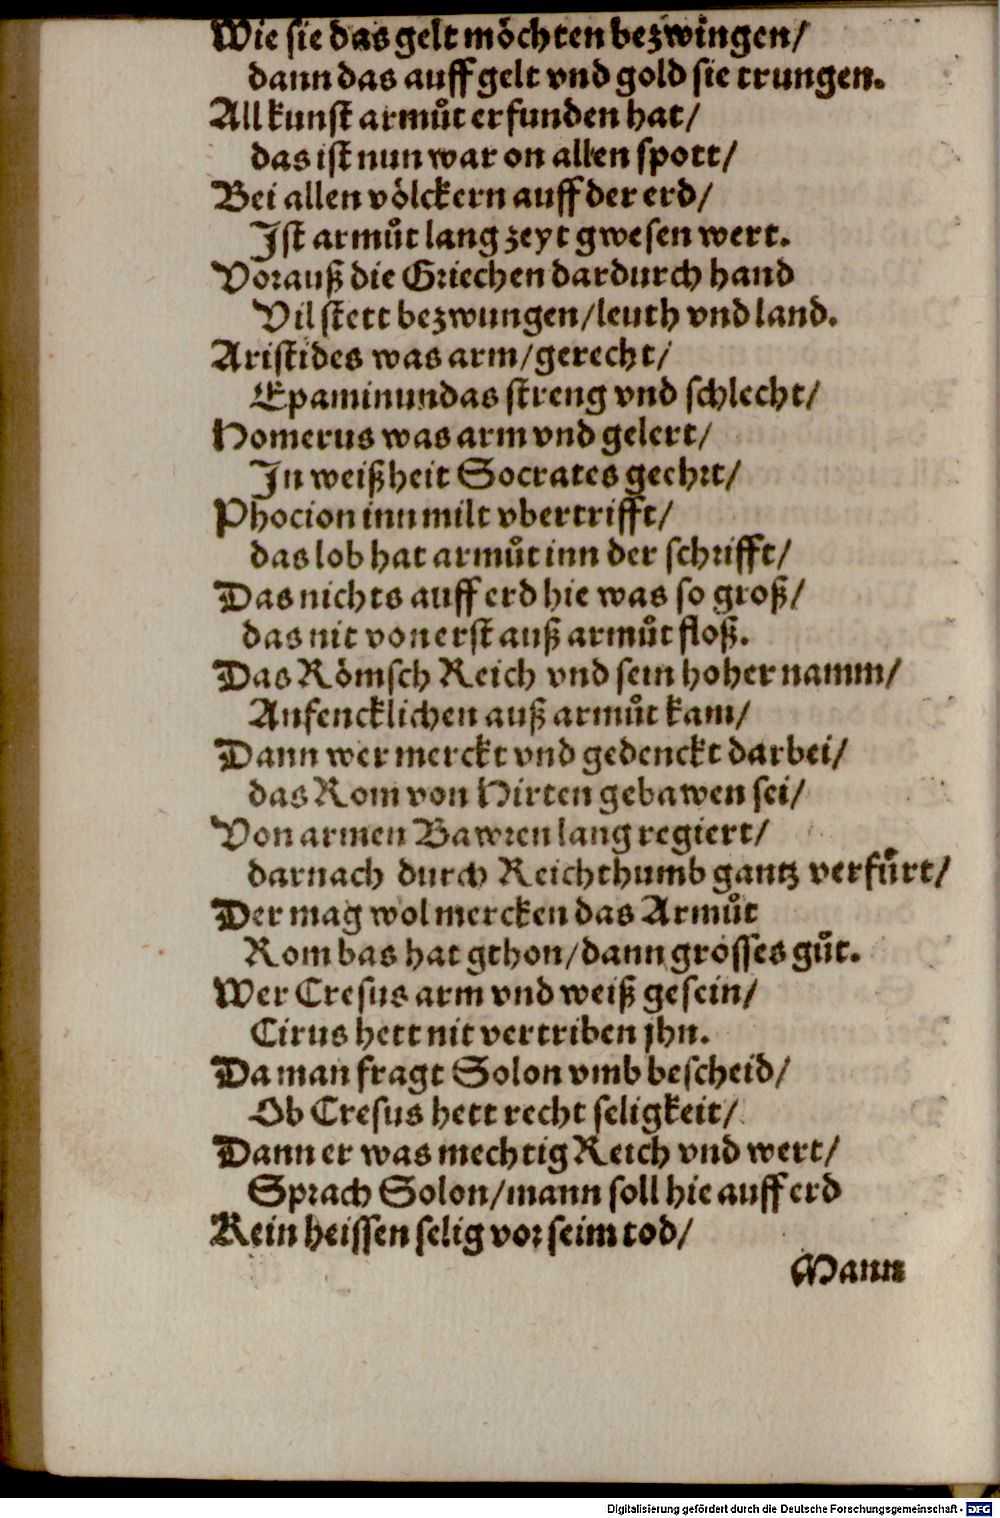 Wie sie das gelt möchten bezwingen/
dann das auff gelt vnd gold sie trungen.
All kunst armůt erfunden hat/
das ist nun war on allen spott/
Bei allen völckern auff der erd/
Ist armůt lang zeyt gwesen wert.
Vorauß die Griechen dardurch hand
Vil stett bezwungen/leuth vnd land.
Aristides was arm/gerecht/
Epaminundas streng vnd schlecht/
Homerus was arm vnd gelert/
In weißheit Socrates geehrt/
Phocion inn milt vbertrifft/
das lob hat armůt inn der schrifft/
Das nichts auff erd hie was so groß/
das nit von erst auß armůt floß.
Das Römsch Reich vnd sein hoher namm/
Anfencklichen auß armůt kam/
Dann wer merckt vnd gedenckt darbei/
das Rom von Hirten gebawen sei/
Von armen Bawren lang regiert/
darnach durch Reichthumb gantz verfůrt/
Der mag wol mercken das Armůt
Rom bas hat gthon/dann grosses gůt.
Wer Cresus arm vnd weiß gesein/
Cirus hett nit vertriben jhn.
Da man fragt Solon vmb bescheid/
Ob Cresus hett recht seligkeit/
Dann er was mechtig Reich vnd wert/
Sprach Solon/mann soll hie auff erd
Kein heissen selig vor seim tod/
Mann
Digitalisierung gefördert durch die Deutsche Forschungsgemeinschaft - DFG